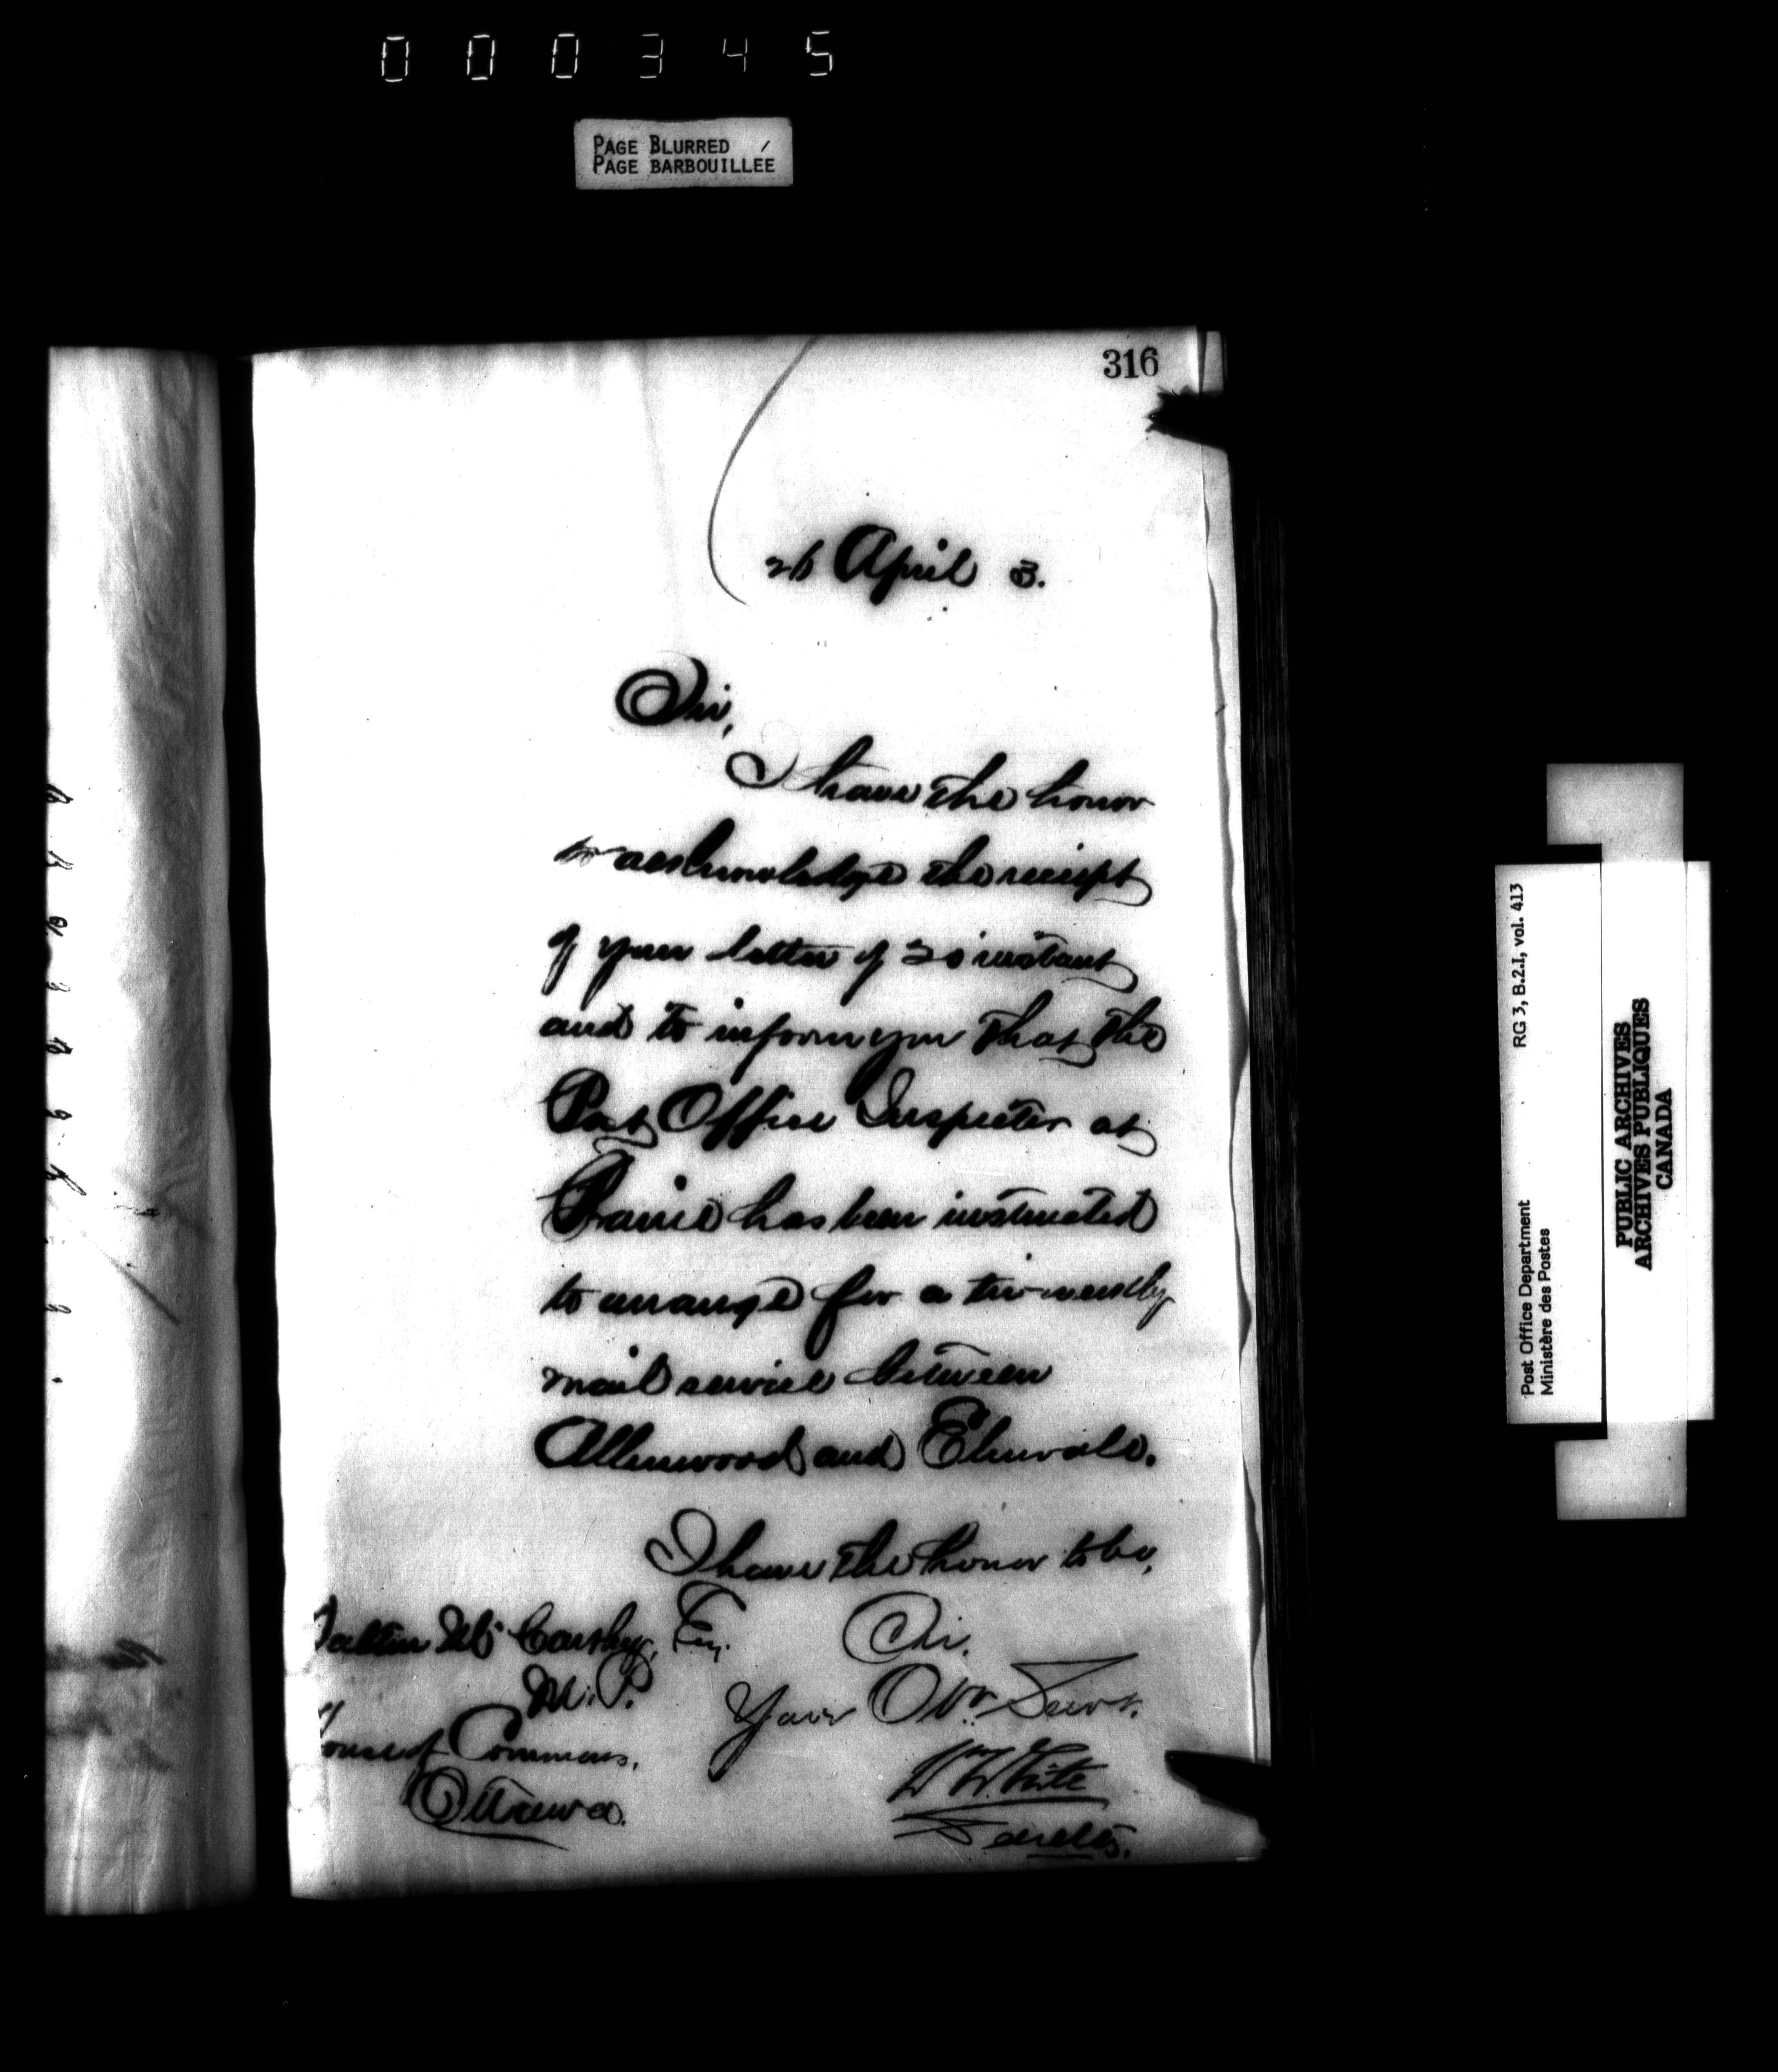 000345
PAGE BLURRED
PAGE BARBOUILLÉE
316
26 April 3.
Sir,
I have the honor
to acknowledge the receipt
of your letter of 20 instant
and to inform you that the
Post Office Inspector at
Barrie has been instructed
to arrange for a tri-weekly
mail service between
Allenwood and Elmvale.
I have the honor to be,
Sir.
Your Obt. Servt.
Wm White
Secretary.
Dalton McCarthy, Esq.
M.P.
House of Commons,
Ottawa.
Post Office Department RG 3, B.2.I, vol. 413
Ministère des Postes
PUBLIC ARCHIVES
ARCHIVES PUBLIQUES
CANADA